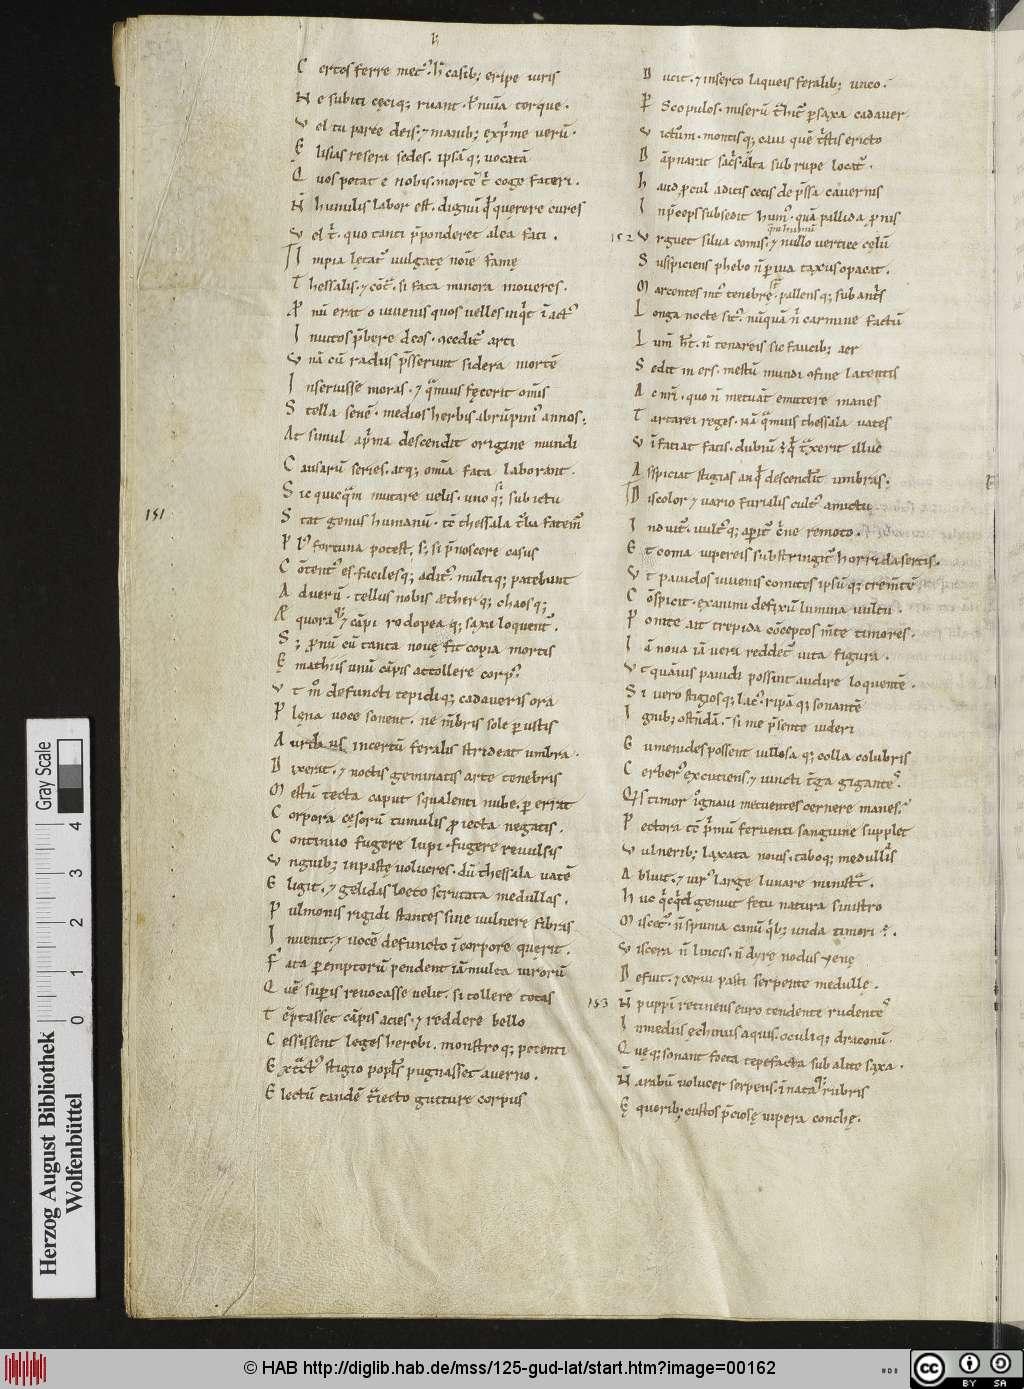 C ertos ferre metꝰ. h̄ casib; eripe iuris
N e subiti cęciq; ruant. ł numīa torque.
V el tu parce deis. ⁊ manib; exp̄me uerū.
E lisias resera sedes. ipsā q; uocatā
Q uos petat e nobis. mortē m̄ coge fateri.
N̄ humilis labor est. dignū qđ querere cures
V el t̄. quo tanti p̄ponderet alea fati.
I mpia lętatᷣ uulgatę noīe famę
T hessalis. ⁊ cōtᷓ. si fata minora moueres.
P nū erat o iuuenis quos uelles inqͥt ī actꝰ
I nuitos p̄bere deos. ꝯceditᷣ arti
V nā cū radiis p̄sserunt sidera mortē
I nseruisse moras. ⁊ qͣmuis fęcerit om̄is
S tella senē. medios herbis abrūpimꝰ annos.
At simul a p̄ma descendit origine mundi
C ausarū series. atq; om̄ia fata laborant.
S ic quicqͣm mutare uelis. uno q; sub ictu
S tat genus humanū. tc̄ thessala t̄ba fatem̄
P lꝰ fortuna potest. s; si p̄noscere casus
C ōtentꝰ es. facilesq; aditꝰ. multiq; patebunt
A d uerū. tellus nobis ætherq; chaosq;
Æ quoraq; ⁊ cāpi rodopeaq; saxa loquentᷣ.
S ; ꝓnū cū tanta nouę sit copia mortis
E mathiis unū cāpis attollere corpꝰ
V t m̊ defuncti tepidiq; cadaueris ora
P lęna uoce sonent. ne m̄bris sole ꝑustis
A urib us incertū feralis strideat umbra.
D ixerat. ⁊ noctis geminatis arte tenebris
M estū tecta caput squalenti nube. ꝑerrat
C orpora cęsorū tumulis ꝓiecta negatis.
C ontinuo fugere lupi. fugere reuulsis
V nguib; inpastę uolucres. dū thessala uatē
E ligit. ⁊ gelidas loeto scrutata medullas.
P ulmonis rigidi stantes sine uulnere fibras
I nuenit. ⁊ uocē defuncto ī corpore querit.
F ata ꝑemptorū pendent iā multa uirorū
Q uē supis reuocasse uelit. si tollere totas
T ēptasset cāpis acies. ⁊ reddere bello
C essissent leges herebi. monstroq; potenti
E xtͣctꝰ stigio popl̄s pugnasset auerno.
E lectū tandē tͣiecto gutture corpus
D ucit. ⁊ inserto laqueis feralib; unco.
P Scopulos. miserū thͥtᷣ ꝑ saxa cadauer
V ictūm. montisq; caui quē tͥstis ericto
D āpnarat sac̄s. alta sub rupe locatᷣ.
H aud ꝓcul a ditis cecis de p̄ssa cauernis
I np̄ceps subsedit humꝰ. quā pallida ꝓnis
152 V rguet silua comis. ⁊ nullo uertice cęlū
S usspiciens phebo n̄ ꝑuia taxus opacat.
M arcentes intᷣ tenebrę. pallensq; sub antͥs
L onga nocte sitᷣ. nūquā n̄ carmine factū
L um̄ ht̄. n̄ tenareis sic faucib; aer
S edit iners. mestū mundi ꝯfine latentis
A c nr̄i. quo n̄ metuāt emittere manes
T artarei reges. nā qͣmuis thessala uates
V ī faciat fatis. dubiū ē qđ tͣxerit illuc
A sspiciat stigias an qđ descendit umbras.
D iscolor ⁊ uario furialis cultꝰ amictu.
I nduitᷣ. uultꝰq; aꝑitᷣ cͥne remoto.
E t coma uipereis substringitᷣ horrida sertis.
V t pauidos iuuenis comites ipsūq; trem̄tē
C ōspicit. exanimi defixū lumina uultu.
P onite ait trepida cōceptos m̄te timores.
I ā noua iā uera reddetᷣ uita figura.
V t quāuis pauidi possint audire loquentē.
S i uero stigiosq; lacꝰ. ripāq; sonantē
I gnib; ostēdā. si me p̄sente uideri
E umenides possent uillosaq; colla colubris
C erberꝰ excutiens. ⁊ uincti t̄ga gigantes
Qͥs timor ignaui metuentes cernere manes.
P ectora tc̄ p̄mū feruenti sanguine supplet
V ulnerib; laxata nouis. taboq; medullas
A bluit. ⁊ uirꝰ large lunare ministͣt.
H uc qͥcqͥd genuit fetu natura sinistro
M iscetᷣ. n̄ spuma canū qͥb; unda timori ē.
V iscera n̄ lincis. n̄ dyre nodus yenę
D efuit. ⁊ cerui pasti serpente medullę.
153 N̄ puppī retinens euro tendente rudentes
I n mediis ęchinus aquis. oculiq; draconū.
Q uęq; sonant foeta tepefacta sub alite saxa.
N̄ arabū uolucer serpens. ī nataq; rubris
E quorib; custos p̄ciosę uipera conchę.
151
Herzog August Bibliothek
Wolfenbüttel
Gray Scale
0 1 2 3 4
© HAB http://diglib.hab.de/mss/125-gud-lat/start.htm?image=00162
cc BY SA